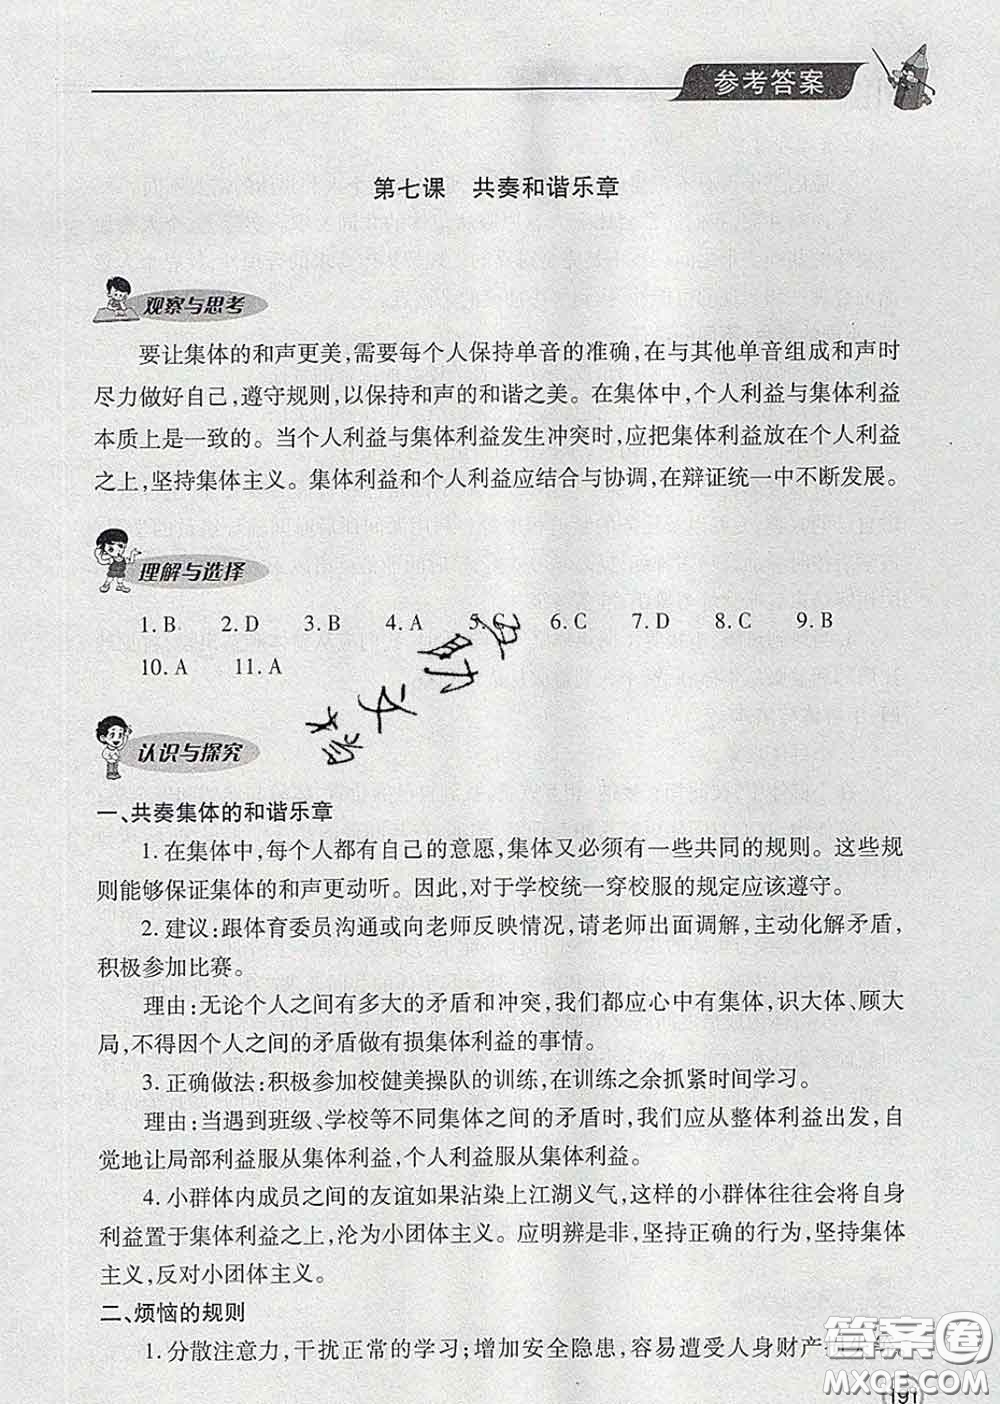 参考答案
第七课　共奏和谐乐章
观察与思考
要让集体的和声更美,需要每个人保持单音的准确,在与其他单音组成和声时
尽力做好自己,遵守规则,以保持和声的和谐之美。在集体中,个人利益与集体利益
本质上是一致的。当个人利益与集体利益发生冲突时,应把集体利益放在个人利益
之上,坚持集体主义。集体利益和个人利益应结合与协调,在辩证统一中不断发展。
理解与选择
1. B　2. D　3. B　4. A　5. C　6. C　7. D　8. C　9. B
10. A　11. A
认识与探究
一、共奏集体的和谐乐章
1. 在集体中,每个人都有自己的意愿,集体又必须有一些共同的规则。这些规
则能够保证集体的和声更动听。因此,对于学校统一穿校服的规定应该遵守。
2. 建议:跟体育委员沟通或向老师反映情况,请老师出面调解,主动化解矛盾,
积极参加比赛。
理由:无论个人之间有多大的矛盾和冲突,我们都应心中有集体,识大体、顾大
局,不得因个人之间的矛盾做有损集体利益的事情。
3. 正确做法:积极参加校健美操队的训练,在训练之余抓紧时间学习。
理由:当遇到班级、学校等不同集体之间的矛盾时,我们应从整体利益出发,自
觉地让局部利益服从集体利益,个人利益服从集体利益。
4. 小群体内成员之间的友谊如果沾染上江湖义气,这样的小群体往往会将自身
利益置于集体利益之上,沦为小团体主义。应明辨是非,坚持正确的行为,坚持集体
主义,反对小团体主义。
二、烦恼的规则
1. 分散注意力,干扰正常的学习;增加安全隐患,容易遭受人身财产
答案卷
MXQE.COM
191